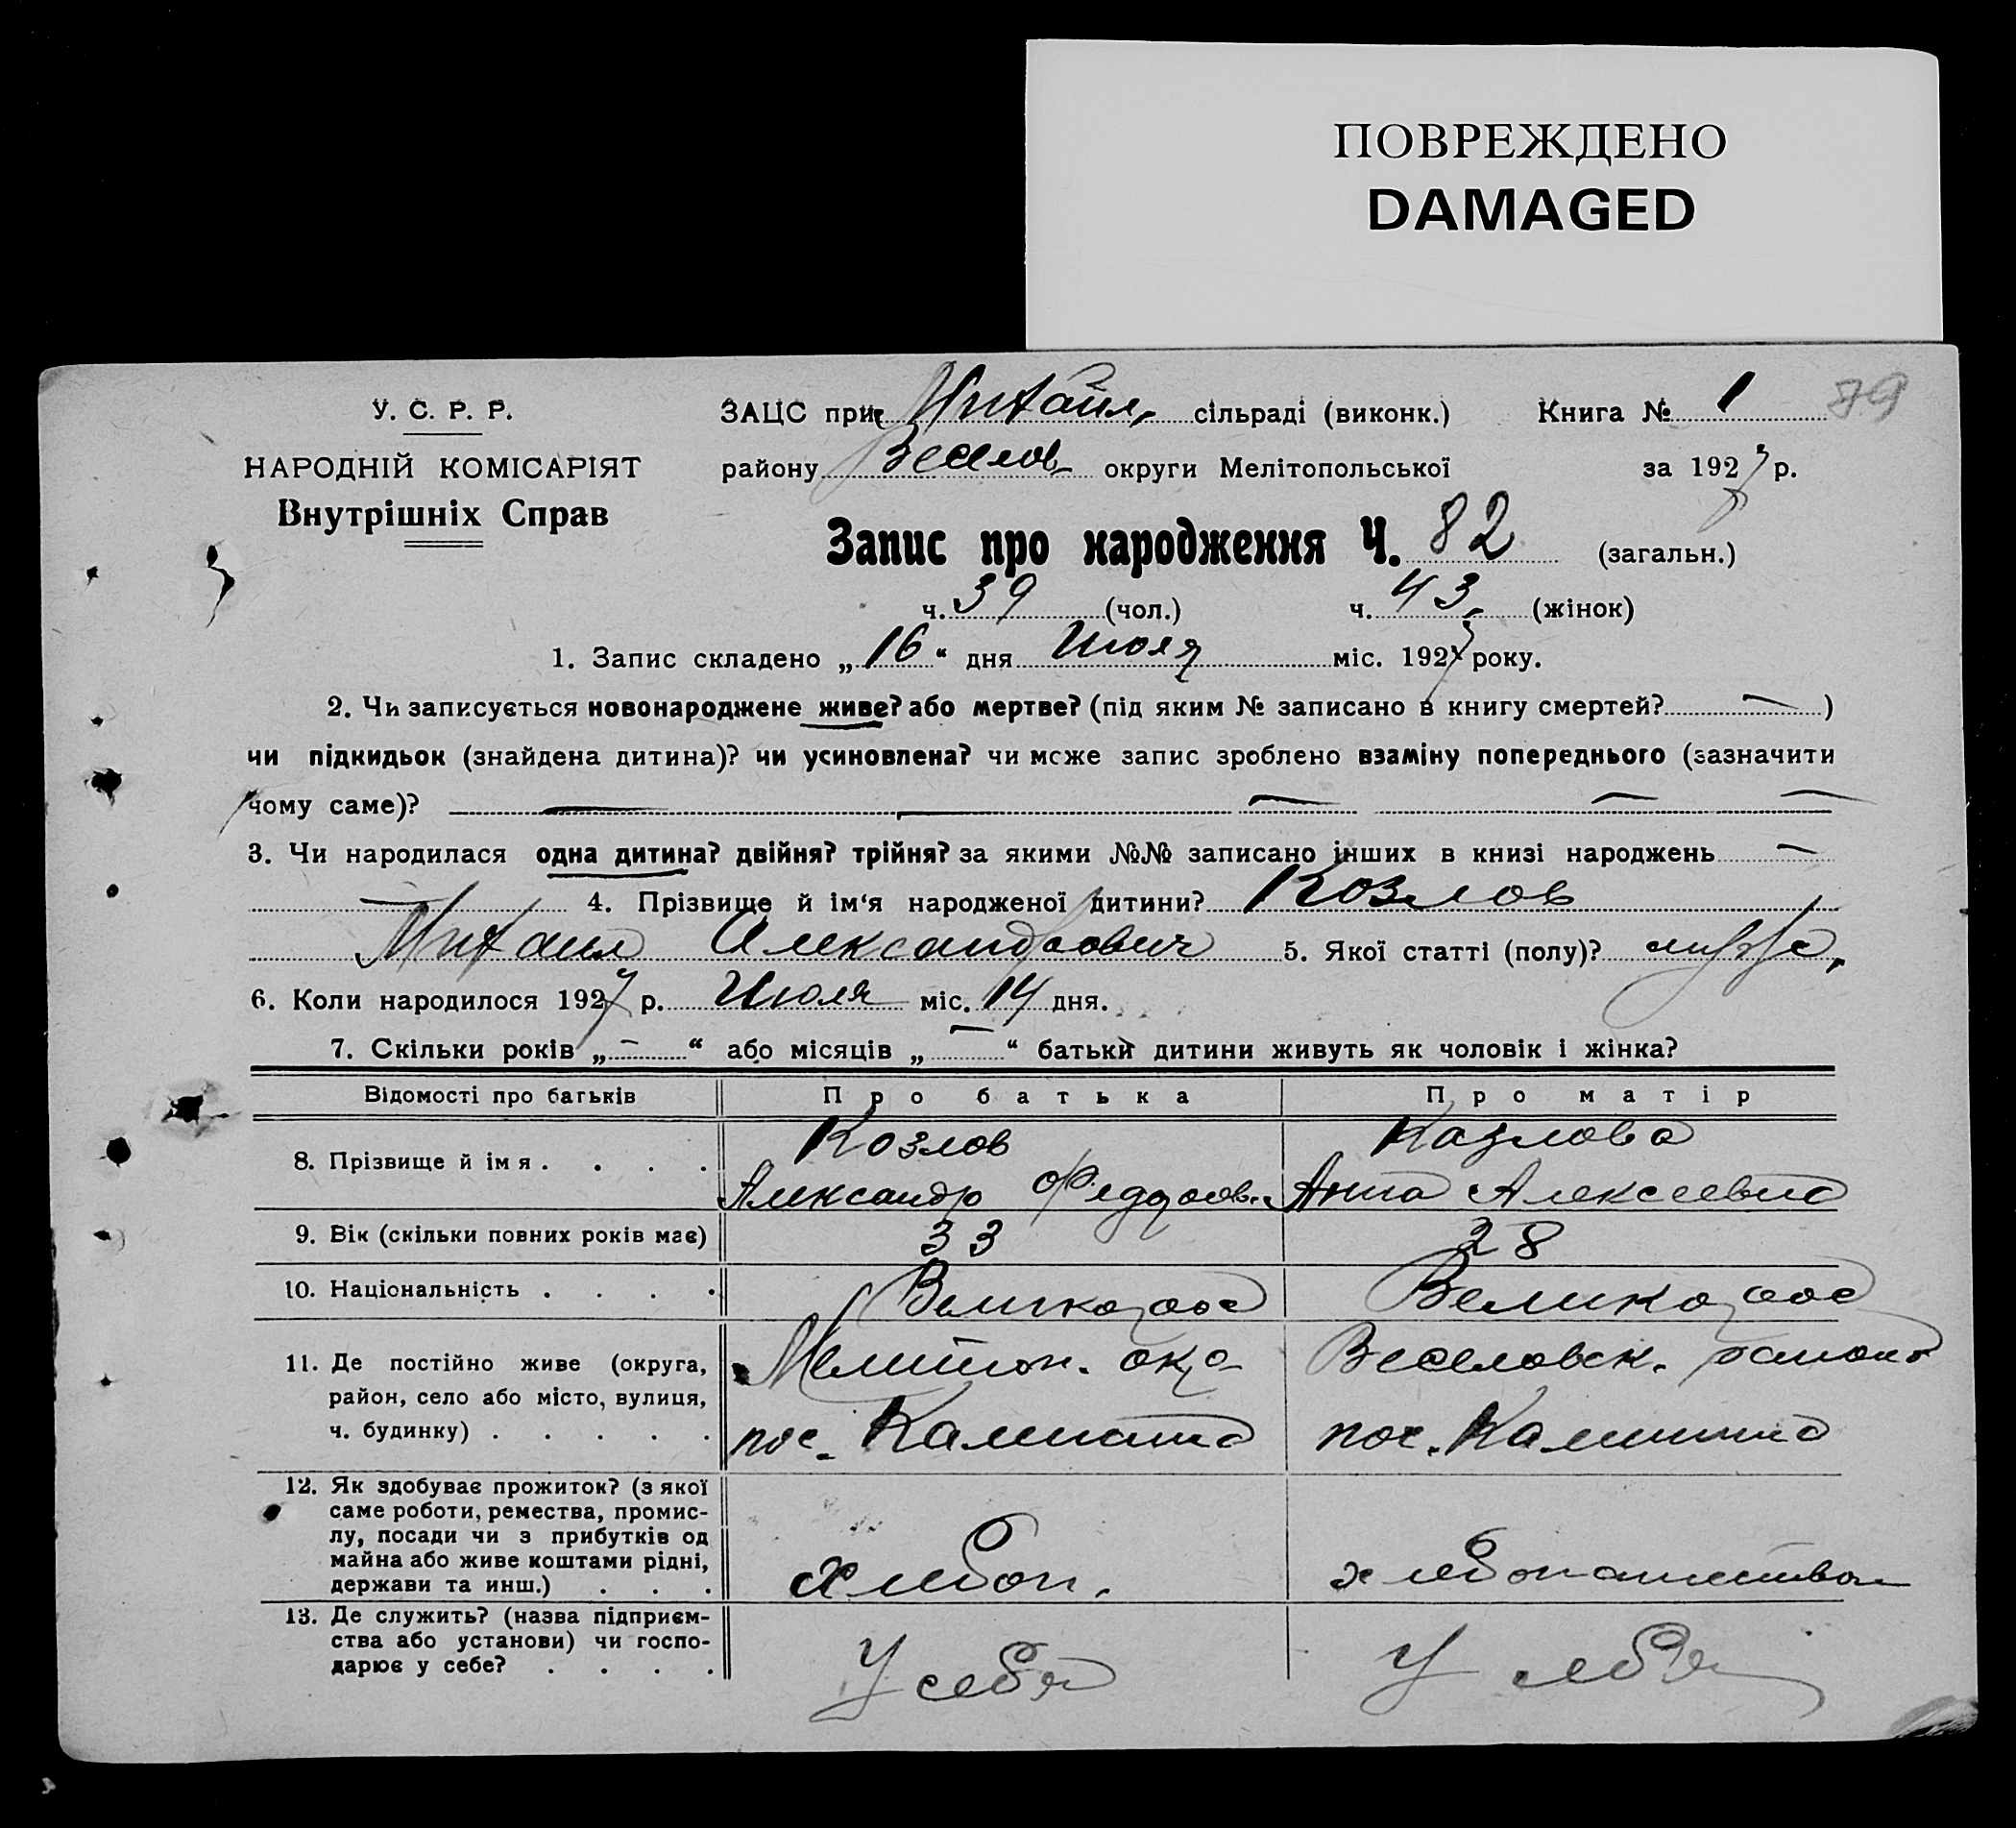 ПОВРЕЖДЕНО
DAMAGED
У. С. Р. Р.
НАРОДНІЙ КОМІСАРІЯТ
Внутрішніх Справ
ЗАЦС при Михайл. сільраді (виконк.) Книга № 1 89
району Веселов. округи Мелітопольської за 1927 р.
Запис про народження Ч. 82 (загальн.)
ч. 39 (чол.) ч. 43 (жінок)
1. Запис складено „16“ дня Июля міс. 1927 року.
2. Чи записується новонароджене живе? або мертве? (під яким № записано в книгу смертей? — )
чи підкидьок (знайдена дитина)? чи усиновлена? чи може запис зроблено взаміну попереднього (зазначити
чому саме)? — — — —
3. Чи народилася одна дитина? двійня? трійня? за якими №№ записано інших в книзі народжень —
— 4. Прізвище й ім‘я народженої дитини? Козлов
Михаил Александрович 5. Якої статті (полу)?
6. Коли народилося 1927 р. Июля міс. 14 дня.
7. Скільки років „ — “ або місяців „ — “ батьки дитини живуть як чоловік і жінка?
Відомості про батьків Про батька Про матір
8. Прізвище й імя . . . . Козлов Козлова
Александр Федоров. Анна Алексеевна
9. Вік (скільки повних років має) 33 28
10. Національність . . . . Великорос Великорос
11. Де постійно живе (округа, Мелитоп. окр. Веселовск. района
район, село або місто, вулиця,
ч. будинку) . . . . . пос. Калинино пос. Калинино
12. Як здобуває прожиток? (з якої
саме роботи, ремества, промис-
лу, посади чи з прибутків од
майна або живе коштами рідні,
держави та инш.) . . . хлебоп. хлебопашеством
13. Де служить? (назва підприєм-
ства або установи) чи госпо-
дарює у себе? . . . . У себя У себя